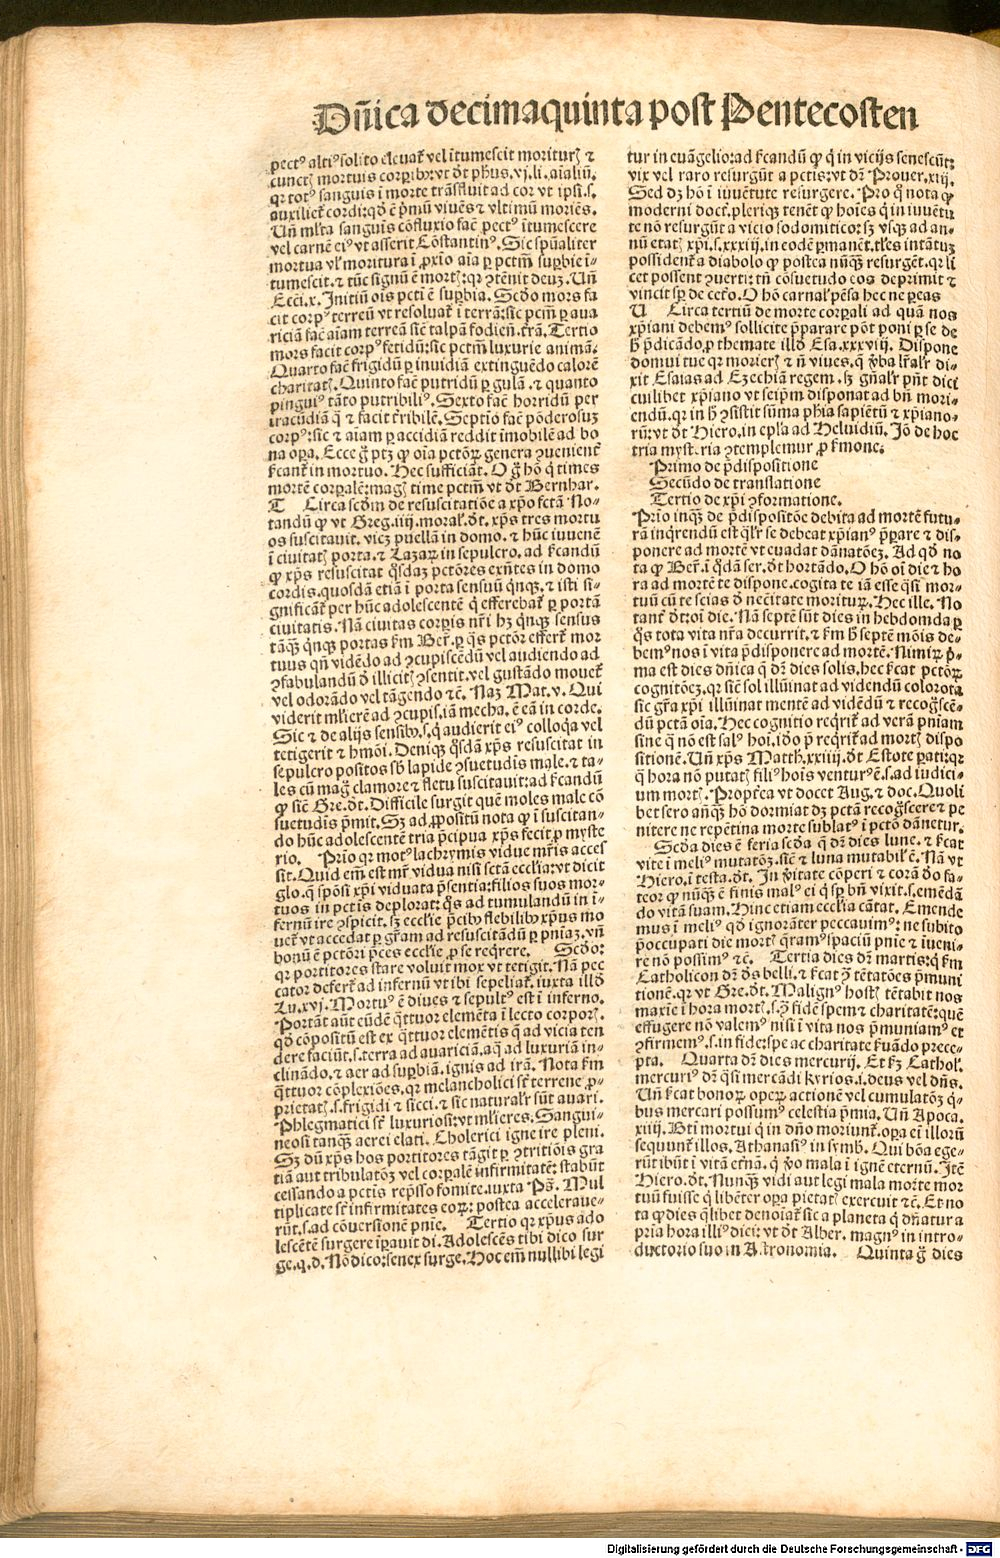 Dn̄ica decimaquinta post Pentecosten
pectꝰ altiꝰ solito eleuat᷑ vel ītumescit morituri ⁊
cunctꝭ mortuis corꝑibꝰ: vt dt̄ phūs. vj. li. aīaliū.
qꝛ totꝰ sanguis ī morte trāsfluit ad cor vt ipsi. s.
auxiliet᷑ cordi: qd̄ ē pͥmū viuēs ⁊ vltimū moriēs.
Un̄ ml̄ta sanguis cōfluxio facͥ pectꝰ ītumescere
vel carnē eiꝰ vt asserit Cōstantinꝰ. Sic spūaliter
mortua vl̓ moritura ī ꝓxīo aīa ꝑ pctm̄ suꝑbie ī-
tumescit. ⁊ tūc signū ē mortꝭ: qꝛ ꝯtēnit deuꝫ. Un̄
Ecci. x. Initiū oīs pcti ē suꝑbia. Scd̄o mors fa
cit corpꝰ terreū vt resoluat᷑ ī terrā: sic pctm̄ ꝑ aua
riciam facͥ aīam terreā sic̄ talpā fodien̄. trā. Tertio
mors facit corpꝰ fetidū: sic pctm̄ luxurie animā.
Quarto facͥ frigidū ꝑ inuidiā extinguēdo calorē
charitatꝭ. Quinto facͥ putridū ꝑ gulā. ⁊ quanto
pinguiꝰ tāto putribiliꝰ. Sexto facͥ horridū per
iracūdiam q̄ ⁊ facit tr̄ribilē. Septīo facͥ pōderosuꝫ
corpꝰ: sic ⁊ aīam ꝑ accidiām reddit īmobilē ad bo
na oꝑa. Ecce g̊ ptꝫ ꝙ oīa pctōꝝ genera ꝯueniēt᷑
ſcant᷑ in mortuo. Hec sufficiāt. O g̊ hō q̄ times
mortē corꝑalē: magꝭ time pctm̄ vt dt̄ Bernhar.
T Circa scd̄m de resuscitatiōe a xp̄o fctā No-
tandū ꝙ vt Greg. iiij. moral̓. dt̄. xp̄s tres mortu
os suscitauit. vicꝫ puellā in domo. ⁊ hūc iuuenē
ī ciuitatꝭ porta. ⁊ Lazaꝝ in sepulcro. ad ſcandū
ꝙ xp̄s resuscitat q̄sdaꝫ pctōres exn̄tes in domo
cordis. quosdā etiā ī porta sensuū qͥnqꝫ. ⁊ isti si-
gnificāt᷑ per hūc adolescentē q̄ efferebat᷑ ꝑ portā
ciuitatis. Nā ciuitas corꝑis nr̄i hꝫ qͥnqꝫ sensus
tāqꝫ qͥnqꝫ portas ſm Ber̄. ꝑ q̄s pctōr effert᷑ mor
tuus qn̄ vidēdo ad ꝯcupiscēdū vel audiendo ad
ꝯfabulandū d̓ illicitꝭ ꝯsentit. vel gustādo mouet᷑
vel odorādo vel tāgendo ⁊c̄. Naꝫ Mat. v. Qui
viderit ml̓ierē ad ꝯcupis. iā mecha. ē eā in corde.
Sic ⁊ de alijs sensibꝰ. s. q̄ audierit eiꝰ colloq̄a vel
tetigerit ⁊ hmōi. Deniqꝫ q̄sdā xp̄s resuscitat in
sepulcro positos sb̄ lapide ꝯsuetudis male. ⁊ ta-
les cū magͦ clamore ⁊ fletu suscitauit: ad ſcandū
ꝙ sic̄ Gre. dt̄. Difficile surgit quē moles male cō
suetudīs pͥmit. Sꝫ ad ꝓpositū nota ꝙ ī suscitan-
do hūc adolescentē tria pͥcipua xp̄s fecit ꝓ myste
rio. Prīo qꝛ motꝰ lachrymis vidue mr̄is acces
sit. Quid em̄ est mr̄ vidua nisi sctā eccl̓ia: vt dicit
glo. q̄ spōsi xp̄i viduata pͥsentia: filios suos mor-
tuos in pctīs deplorat: q̄s ad tumulandū in ī-
fernū ire ꝯspicit. sꝫ eccl̓ie pͥcibꝰ flebilibꝰ xp̄us mo
uet᷑ vt accedat ꝑ gr̄am ad resuscitādū ꝑ pniaꝫ. vn̄
bonū ē pctōri pͥces eccl̓ie ꝓ se req̄rere. Scd̄o:
qꝛ portitores stare voluit mox vt tetigit. Nā pec
cator defert᷑ ad infernū vt ibi sepeliat᷑. iuxta illd̓
Lu. xvj. Mortuꝰ ē diues ⁊ sepultꝰ est ī inferno.
Portāt aūt eūdē q̄ttuor elemēta ī lecto corporꝭ.
qd̄ cōpositū est ex q̄ttuor elemētis q̄ ad vicia ten
dere faciūt. s. terra ad auariciā. aq̄ ad luxuriā in-
clināđo. ⁊ aer ad suꝑbiā. ignis ad irā. Nota ſm
q̄ttuor cōplexiōes. qꝛ melancholici st̄ terrene ꝓ-
prietatꝭ. s. frigidi ⁊ sicci. ⁊ sic natural̓r sūt auari.
Phlegmatici st̄ luxuriosi: vt ml̓ieres. Sangui-
neosi tanqꝫ aerei elati. Cholerici igne ire pleni.
Sꝫ dū xp̄s hos portitores tāgit ꝑ ꝯtritiōis gra
tiā aut tribulatōꝫ vel corꝑalē infirmitatē: stabūt
cessando a pctis rep̄sso fomite. iuxta Ps̄. Mul
tiplicate st̄ infirmitates eoꝝ: postea accelerauē-
rūt. s. ad cōuersionē pnie. Tertio qꝛ xp̄us ado
lescētē surgere iꝑauit di. Adolescēs tibi dico sur
ge. q. d. Nō dico: senex surge. Hoc em̄ nullibi legi
tur in euāgelio: ad ſcandū ꝙ q̄ in vicijs senescūt:
vix vel raro resurgūt a pctis: vt dr̄ Prouer. xiij.
Sed dꝫ hō ī iuuētute resurgere. Pro q̄ nota ꝙ
moderni doct᷑. pleriqꝫ tenēt ꝙ hoīes q̄ in iuuētu
te nō resurgūt a vicio sodomitico: sꝫ vsqꝫ ad an-
nū etatꝭ xp̄i. s. xxxiij. in eodē ꝑmanēt. tl̓es intātuꝫ
possident᷑ a diabolo ꝙ postea nūqꝫ resurgēt. qꝛ lī
cet possent ꝯuerti: tn̄ cōsuetudo eos deprimit ⁊
vincit sꝑ de cet̓o. O hō carnal̓ pēsa hec ne ꝑeas
U Circa tertiū de morte corꝑali ad quā nos
xp̄iani debemꝰ sollicite pͥparare pōt poni ꝑ se de
h̄ pͥdicādo. ꝓ themate illd̓ Esa. xxxviij. Dispone
domui tue qꝛ morierꝭ ⁊ n̄ viues. q̄ v̓ba lr̄al̓r di-
xit Esaias ad Ezechiā regem. sꝫ gn̄al̓r pn̄t dici
cuilibet xp̄iano vt seipm̄ disponat ad bn̄ mori-
endū. qꝛ in h̄ ꝯsistit sūma phīa sapiētū ⁊ xp̄iano-
rū: vt dt̄ Hiero. in epl̓a ad Heluidiū. Iō de hoc
tria mysteria ꝯtemplemur ꝓ ẜmone.
Primo de pͥdispositione
Secūdo de translatione
Tertio de xp̄i ꝯformatione.
Prīo inqꝫ de pͥdispositōe debita ad mortē futu-
rā inq̄rendū est q̄l̓r se debeat xp̄ianꝰ pͥparare ⁊ dis-
ponere ad mortē vt euadat dānatōeꝫ. Ad qd̄ no
ta ꝙ Ber̄. ī q̄dā ser. dt̄ hortādo. O hō oī die ⁊ ho
ra ad mortē te dispone. cogita te iā esse q̄si mor-
tuū cū te scias d̓ necītate morituꝝ. Hec ille. No
tant᷑ dt̄: oī die. Nā septē sūt dies in hebdomda ꝑ
q̄s tota vita nr̄a decurrit. ⁊ ſm h̄ septē mōis de-
bemꝰ nos ī vita pͥdisponere ad mortē. Nimiꝝ pͥ-
ma est dies dn̄ica q̄ dr̄ dies solis. hec ſcat pctōꝝ
cognitōeꝫ. qꝛ sic̄ sol illūinat ad videndū colorata
sic gr̄a xp̄i illūinat mentē ad vidēdū ⁊ recog̊scē-
dū pctā oīa. Hec cognitio reqͥrit᷑ ad verā pniam
sine q̄ nō est salꝰ hoī. iđo pͥ reqͥrit᷑ ad mortꝭ dispo
sitionē. Un̄ xp̄s Matth. xxiiij. dt̄ Estote ꝑati: qꝛ
q̄ hora nō putatꝭ filiꝰ hoīs venturꝰ ē. s. ad iudici-
um mortꝭ. Propt̓ea vt docet Aug. ⁊ doc. Quoli
bet sero an̄qꝫ hō dormiat dꝫ pctā recog̊scere ⁊ pe
nitere ne repētina morte sublatꝰ ī pctō dānetur.
Scđa dies ē feria scđa q̄ dr̄ dies lune. ⁊ ſcat
vite ī meliꝰ mutatōꝫ. sic̄ ⁊ luna mutabil̓ ē. Nā vt
Hiero. ī testa. dt̄. In v̓itate cōperi ⁊ corā dō fa-
teor ꝙ nūqꝫ ē finis malꝰ ei q̄ sꝑ bn̄ vixit. s. emēdā
do vitā suam. Hinc etiam eccl̓ia cātat. Emende
mus ī meliꝰ qd̄ ignorāter peccauimꝰ: ne subito
pͥoccupati die mortꝭ q̄ramꝰ spaciū pnie ⁊ iueni-
re nō possimꝰ ⁊c̄. Tertia dies dr̄ martis: q̄ ſm
Catholicon dr̄ d̓s belli. ⁊ ſcat ꝯ̄ tētatōes pͥmuni
tionē. qꝛ vt Gre. dt̄. Malignꝰ hostꝭ tētabit nos
maxīe ī hora mortꝭ. s. ꝯ̄ fidē spem ⁊ charitatē: quē
effugere nō valemꝰ nisi ī vita nos pͥmuniamꝰ et
ꝯfirmemꝰ. s. in fide: spe ac charitate ẜuādo prece-
pta. Quarta dr̄ dies mercurij. Et ſꝫ Cathol̓.
mercuriꝰ dr̄ q̄si mercādi kyrios. i. deus vel dn̄s.
Un̄ ſcat bonoꝝ opeꝝ actionē vel cumulatōꝫ q̄-
bus mercari possumꝰ celestia pͥmia. Un̄ Apoca.
xiiij. Bt̄i mortui q̄ in dn̄o moriunt᷑. oꝑa ei illorū
sequunt᷑ illos. Athanasiꝰ in symb. Qui bōa ege-
rūt ibūt ī vitā et̓nā. q̄ v̓o mala ī ignē eternū. Itē
Hiero. dt̄. Nunqꝫ vidi aut legi mala morte mor
tuū fuisse q̄ libēter oꝑa pietatꝭ exercuit ⁊c̄. Et no
ta ꝙ dies q̄libet denoīat᷑ sic a planeta q̄ dn̄atur a
pria hora illiꝰ diei: vt dt̄ Alber. magnꝰ in intro-
ductorio suo in Astronomia. Quinta g̊ dies
Digitalisierung gefördert durch die Deutsche Forschungsgemeinschaft - DFG